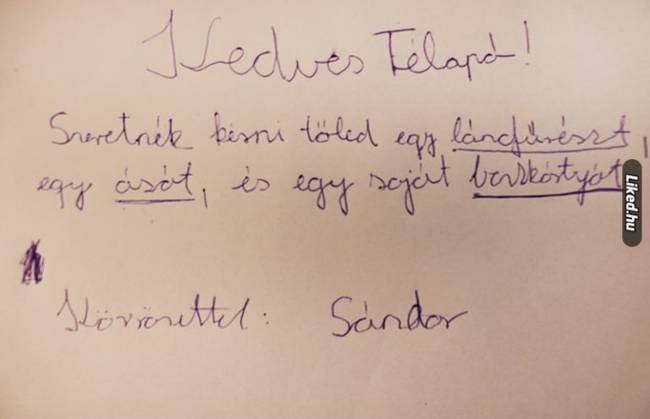 Kedves Télapó!
Szeretnék kérni tőled egy láncfűrészt,
egy ásót, és egy saját
Köszönettel: Sándor
Liked.hu